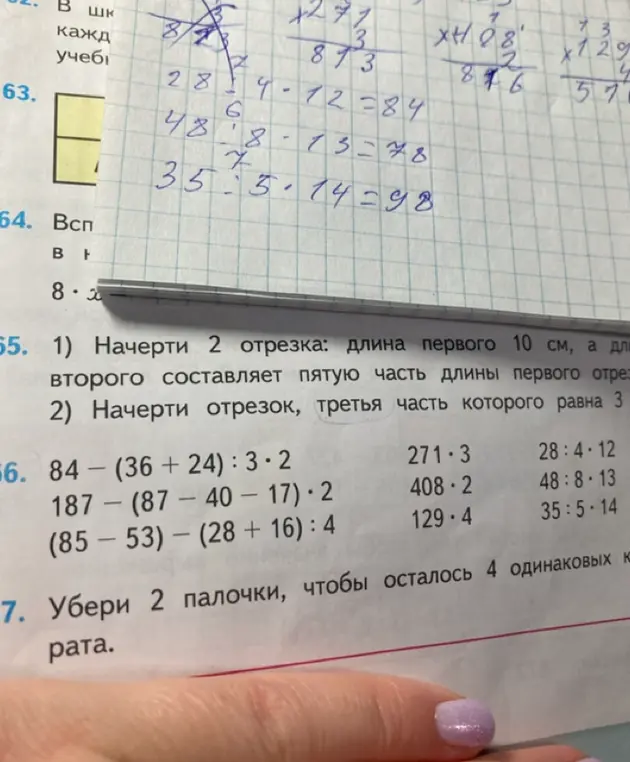 В шк
кажд
учебн
271
× 3
813
×408
2
816
×129
4
28 : 4 · 12 = 84
48 : 8 · 13 = 78
35 : 5 · 14 = 98
63.
64. Всп
в н
8 ·
65. 1) Начерти 2 отрезка: длина первого 10 см, а дл
второго составляет пятую часть длины первого отре
2) Начерти отрезок, третья часть которого равна 3
66. 84 − (36 + 24) : 3 · 2 271 · 3 28 : 4 · 12
187 − (87 − 40 − 17) · 2 408 · 2 48 : 8 · 13
(85 − 53) − (28 + 16) : 4 129 · 4 35 : 5 · 14
7. Убери 2 палочки, чтобы осталось 4 одинаковых к
рата.